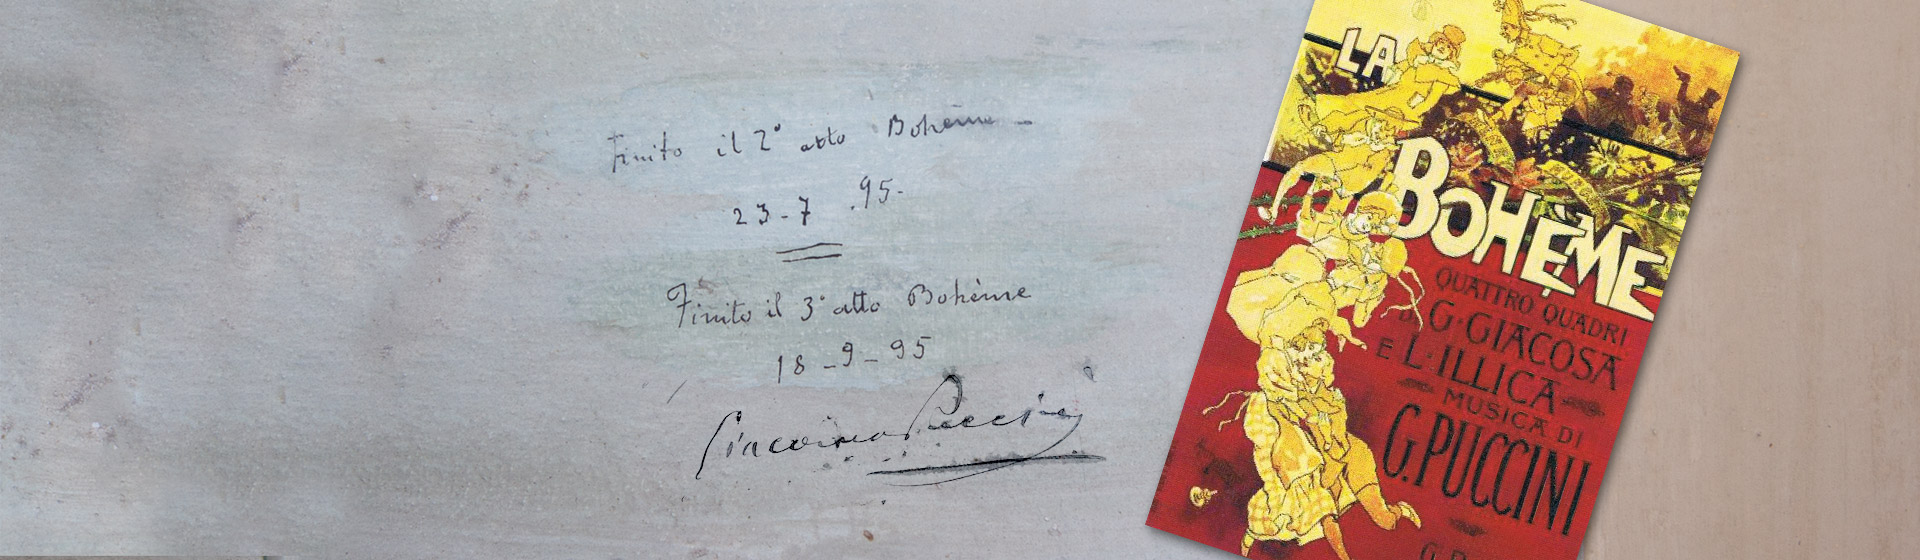 Finito il 2° atto Bohème -
23 - 7 . 95 -
Finito il 3° atto Bohème
18 - 9 - 95
Giacomo Puccini
LA
BOHÈME
QUATTRO QUADRI
DI G. GIACOSA
E L. ILLICA
MUSICA DI
G. PUCCINI